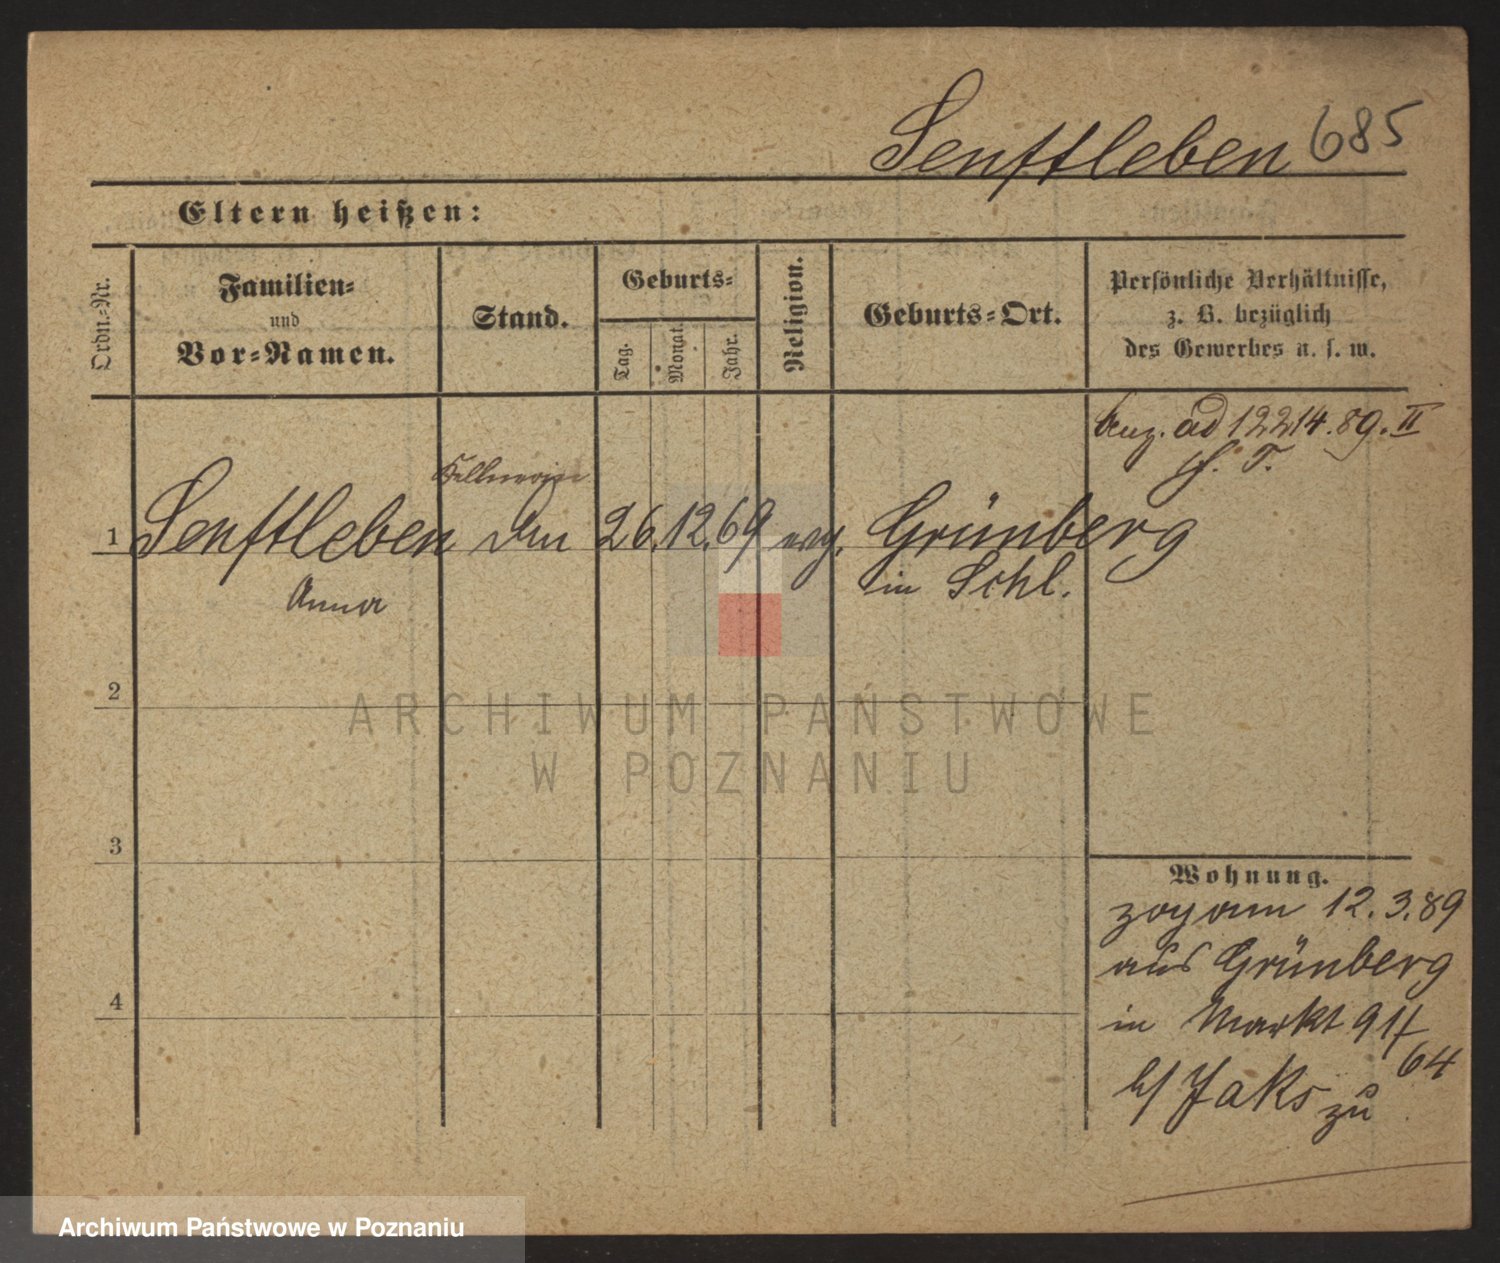 Senftleben 685
Eltern heißen:
Ordn.-Nr.
Familien-
und
Vor-Namen.
Stand.
Geburts-
Tag.
Monat.
Jahr.
Religion.
Geburts-Ort.
Persönliche Verhältnisse,
z. B. bezüglich
des Gewerbes u. s. w.
ad 12214.89.II
1 Senftleben 26.12.69 evg. Grünberg
Anna
in Schl.
2
3
4
Wohnung.
zog am 12.3.89
aus Grünberg
in Markt 91/
64
b/ Jaks zu
ARCHIWUM PAŃSTWOWE
W POZNANIU
Archiwum Państwowe w Poznaniu